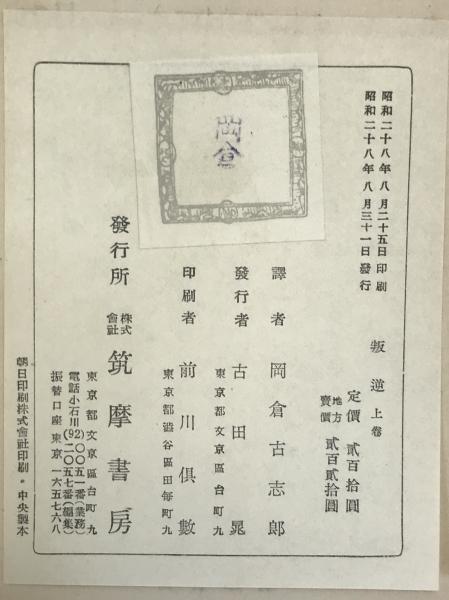 昭和二十八年八月二十五日印刷
昭和二十八年八月三十一日發行
叛逆 上卷
定價 貳百拾圓
地方賣價 貳百貳拾圓
譯者 岡倉古志郎
發行者 古田晁
東京都文京區台町九
印刷者 前川俱數
東京都澁谷區田每町九
發行所 株式會社 筑摩書房
東京都文京區台町九
電話小石川(92)〇〇五一番(業務)
二〇五七番(編集)
振替口座東京一六五七六八
朝日印刷株式會社印刷・中央製本
岡倉